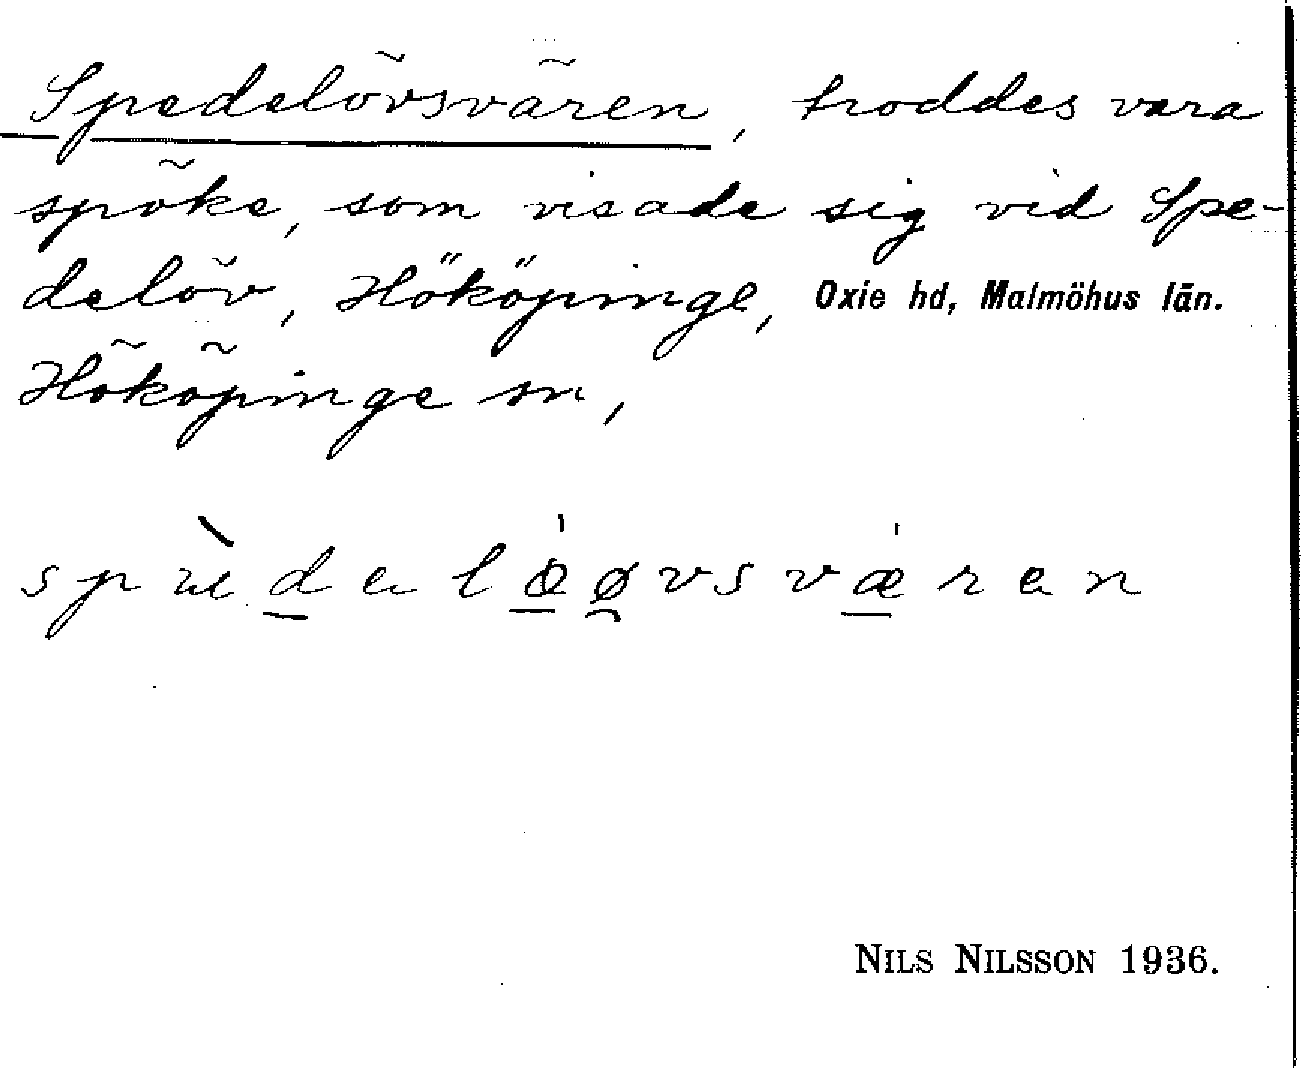 Spedelövsvären, troddes vara
spöke, som visade sig vid Spe-
delöv, Hököpinge, Oxie hd, Malmöhus län.
Hököpinge sn,
NILS NILSSON 1936.